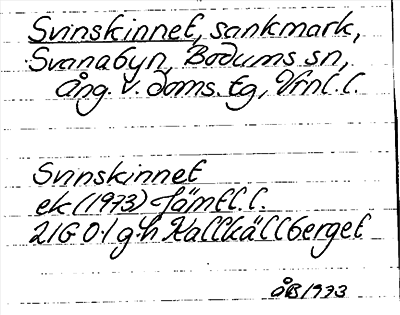 Svinskinnet, sankmark,
Svanabyn, Bodums sn,
Ång. v. doms. tg, Vrnl. l.
Svinskinnet
ek (1973) Jämtl. l.
21G 0. l g. h Kallkällberget
ÅB 1973